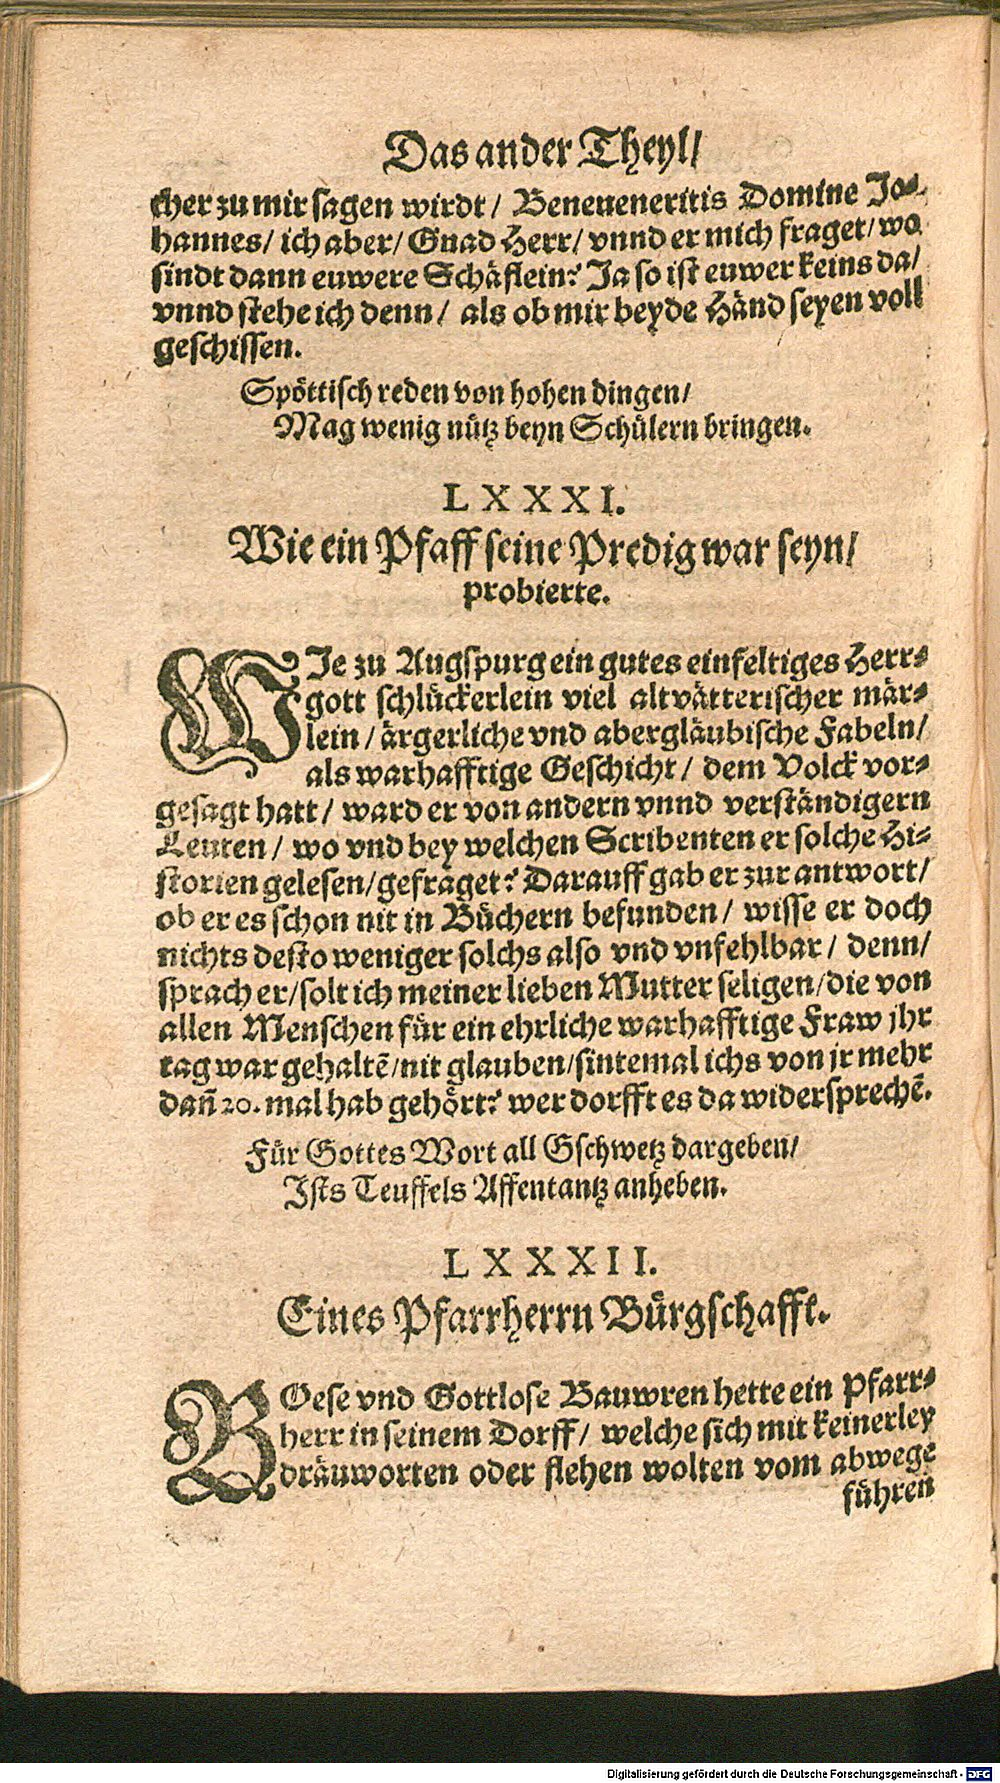 Das ander Theyl/
cher zu mir sagen wirdt / Beneueneritis Domine Jo⸗
hannes/ ich aber/ Gnad Herr/ vnnd er mich fraget/ wo
sindt dann euwere Schäflein? Ja so ist euwer keins da/
vnnd stehe ich denn / als ob mir beyde Händ seyen voll
geschissen.
Spöttisch reden von hohen dingen/
Mag wenig nütz beyn Schülern bringen.
LXXXI.
Wie ein Pfaff seine Predig war seyn/
probierte.
WJe zu Augspurg ein gutes einfeltiges Herr⸗
gott schlückerlein viel altvätterischer mär⸗
lein / ärgerliche vnd abergläubische Fabeln/
als warhafftige Geschicht / dem Volck vor⸗
gesagt hatt / ward er von andern vnnd verständigern
Leuten / wo vnd bey welchen Scribenten er solche Hi⸗
storien gelesen/gefraget? Darauff gab er zur antwort/
ob er es schon nit in Büchern befunden / wisse er doch
nichts desto weniger solchs also vnd vnfehlbar / denn/
sprach er/solt ich meiner lieben Mutter seligen/die von
allen Menschen für ein ehrliche warhafftige Fraw jhr
tag war gehaltē/nit glauben/sintemal ichs von jr mehr
dañ 20. mal hab gehört? wer dorfft es da widersprechē.
Für Gottes Wort all Gschwetz dargeben/
Jsts Teuffels Affentantz anheben.
LXXXII.
Eines Pfarrherrn Bürgschafft.
BOese vnd Gottlose Bauwren hette ein Pfarr⸗
herr in seinem Dorff / welche sich mit keinerley
dräuworten oder flehen wolten vom abwege
führen
Digitalisierung gefördert durch die Deutsche Forschungsgemeinschaft - DFG